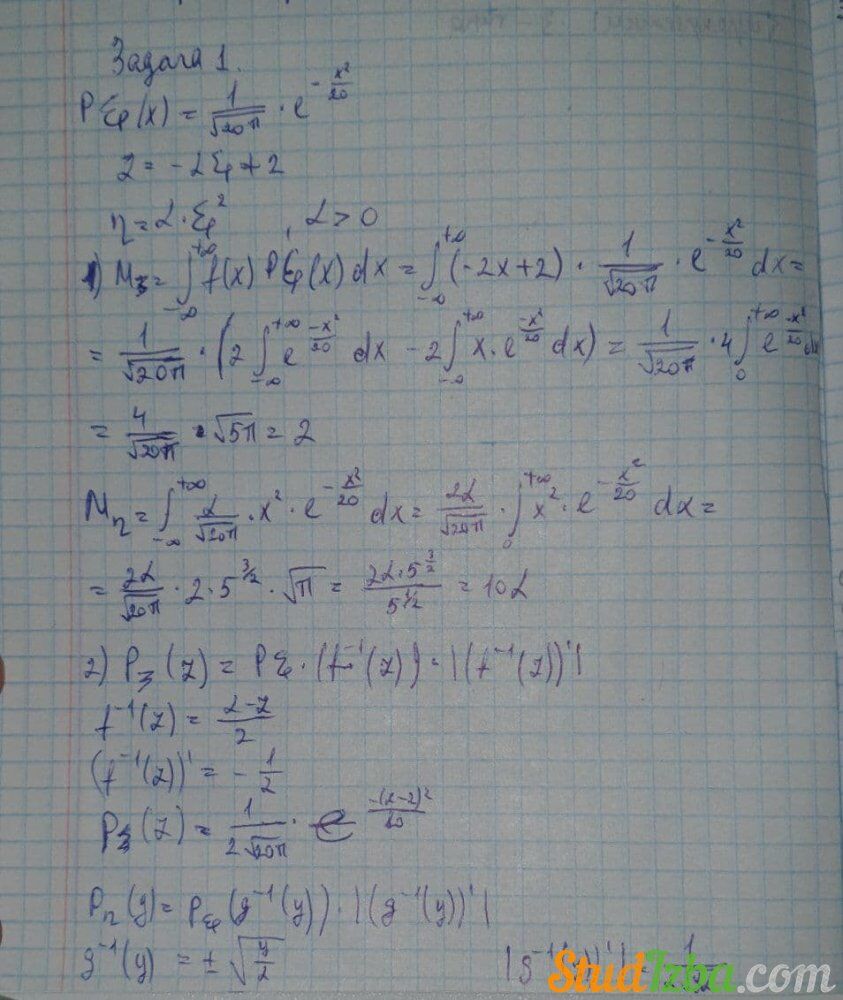 Задача 1.
Pξ(x) = 1/√20π · e^(-x²/20)
z = -2ξ + 2
η = α·ξ², α > 0
1) Mз = ∫_{-∞}^{+∞} f(x) Pξ(x) dx = ∫_{-∞}^{+∞} (-2x+2) · 1/√20π · e^(-x²/20) dx =
= 1/√20π · (2 ∫_{-∞}^{+∞} e^(-x²/20) dx - 2 ∫_{-∞}^{+∞} x · e^(-x²/20) dx) = 1/√20π · 4 ∫_0^{+∞} e^(-x²/20) dx
= 4/√20π · √5π = 2
Mη = ∫_{-∞}^{+∞} α/√20π · x² · e^(-x²/20) dx = 2α/√20π · ∫_0^{+∞} x² · e^(-x²/20) dx =
= 2α/√20π · 2 · 5^(3/2) · √π = 2α·5^(3/2)/5^(1/2) = 10α
2) Pз(z) = Pξ · (f⁻¹(z)) · |(f⁻¹(z))'|
f⁻¹(z) = (2-z)/2
(f⁻¹(z))' = -1/2
Pз(z) = 1/2√20π · e^(-(z-2)²/80)
Pη(y) = Pξ(g⁻¹(y)) · |(g⁻¹(y))'|
g⁻¹(y) = ±√(y/α)
StudIzba.com